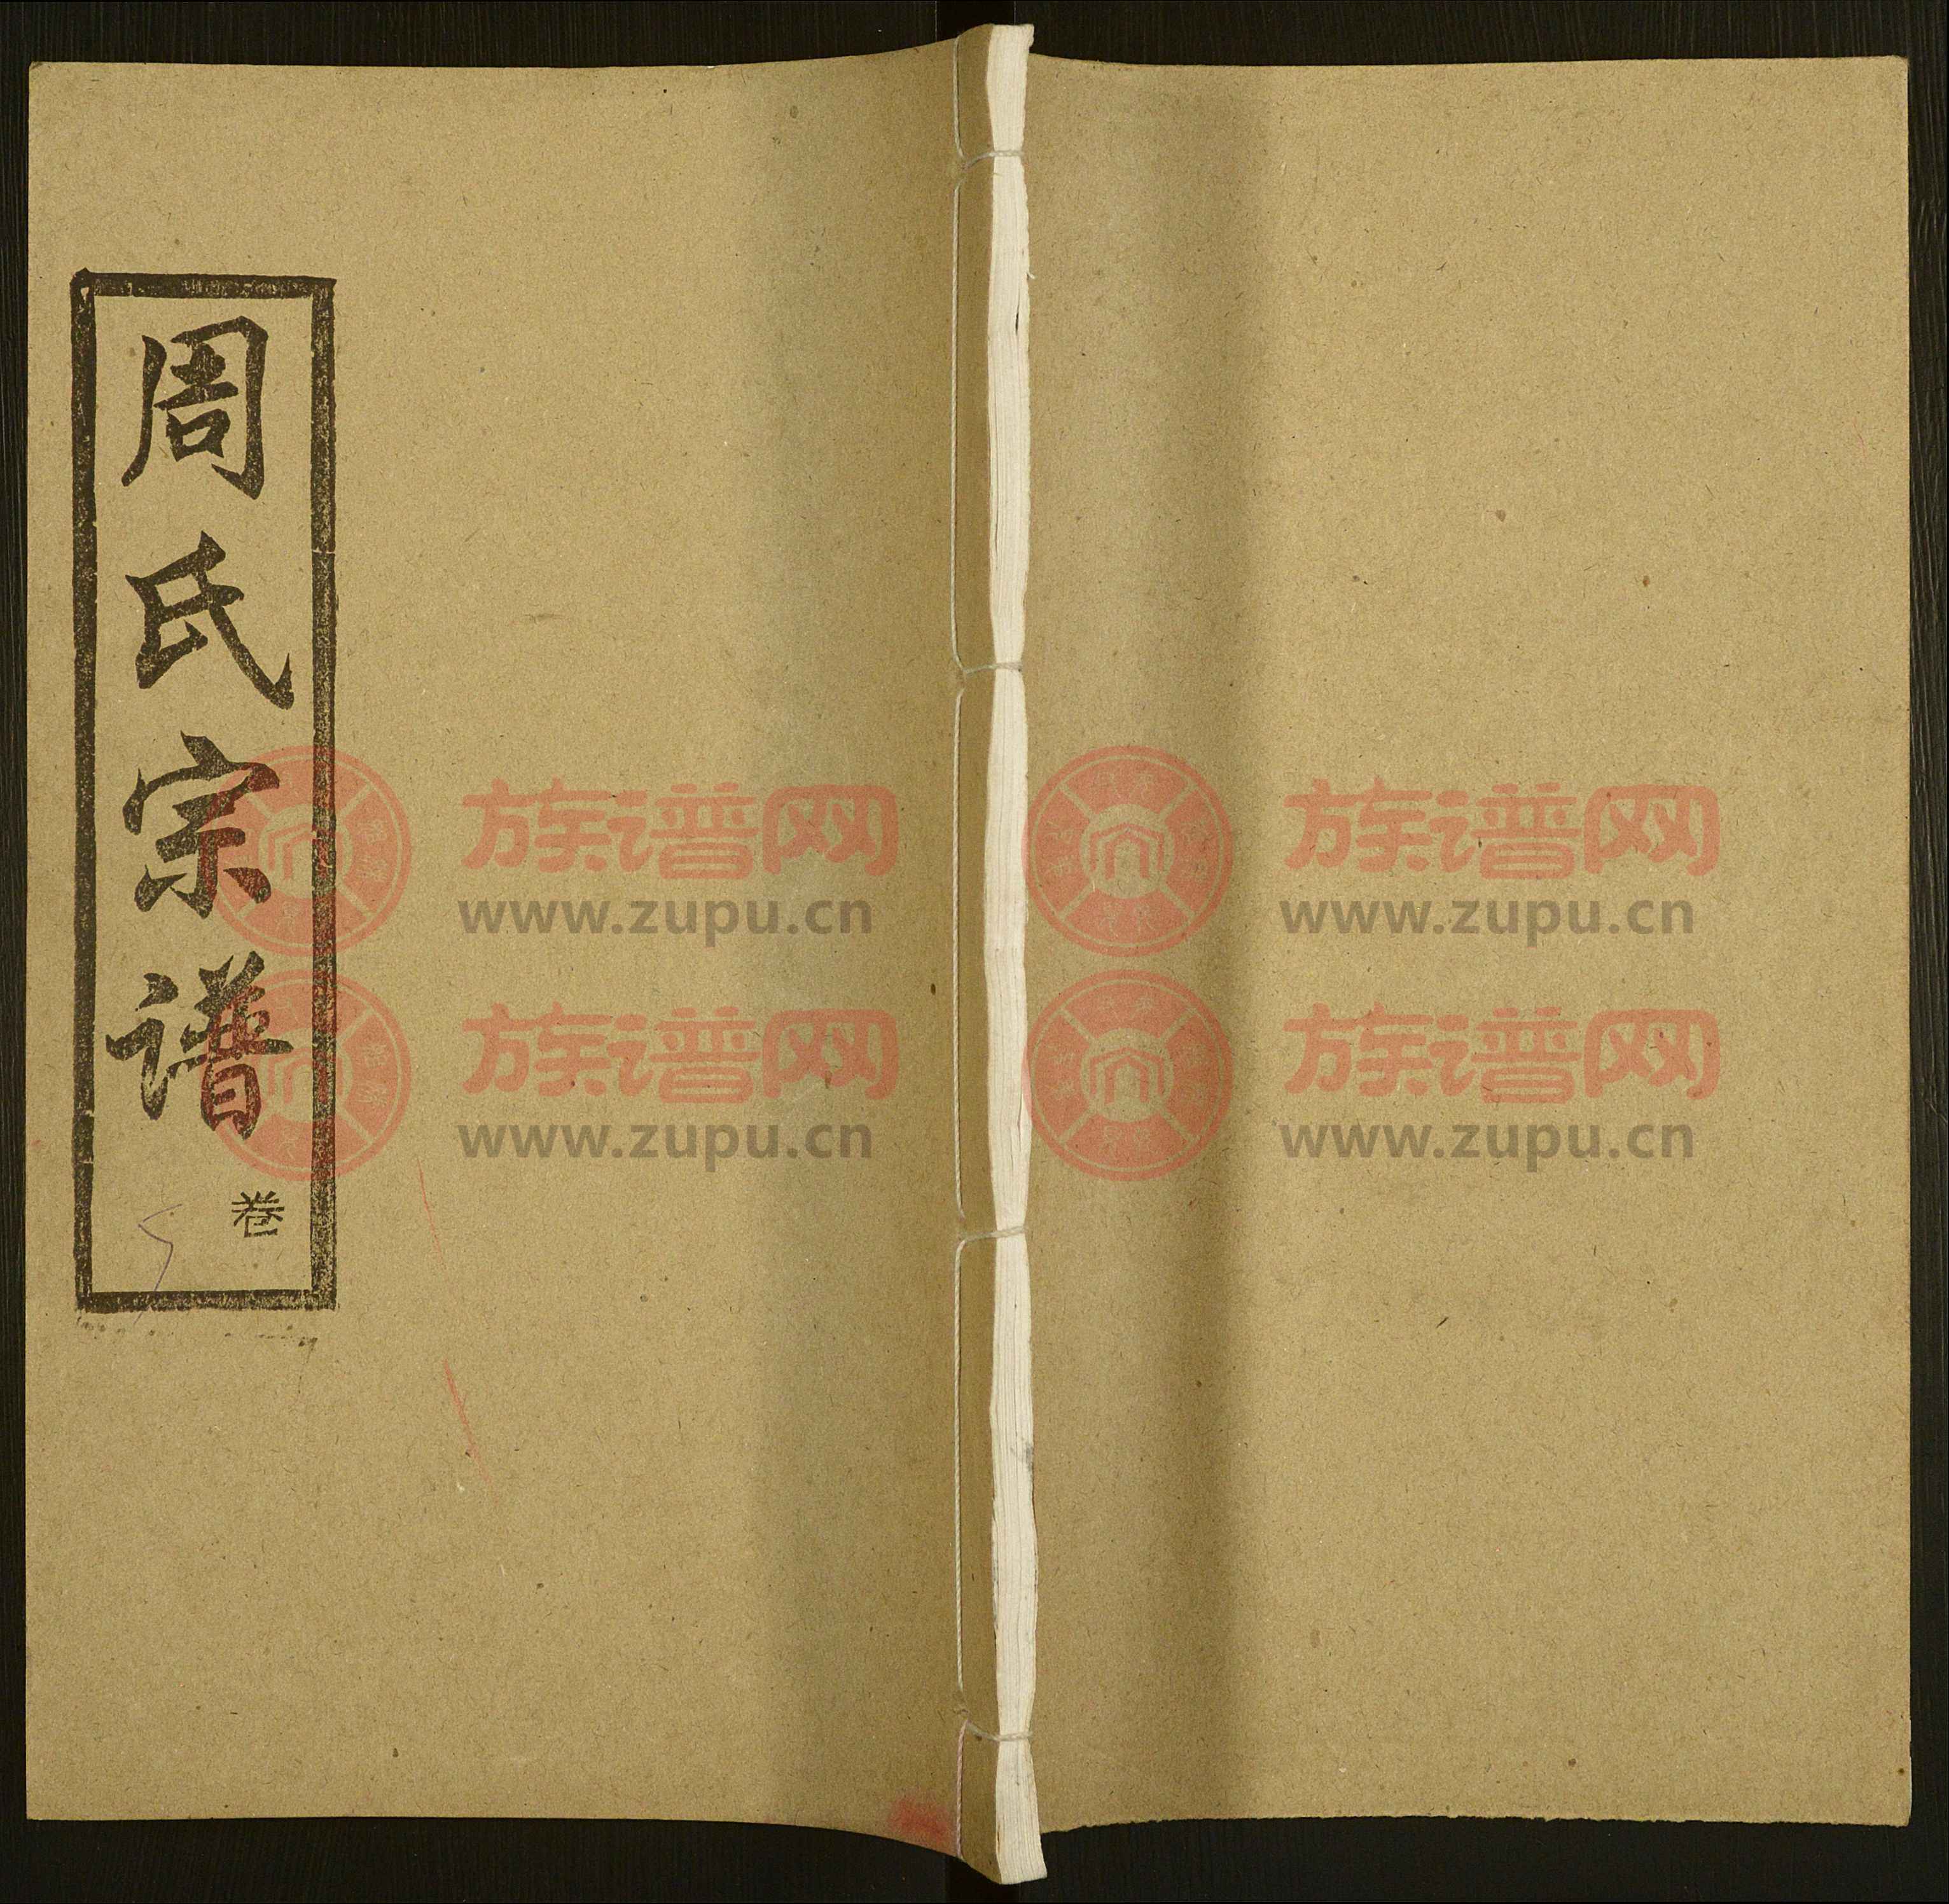 周氏宗谱
卷
族谱网
www.zupu.cn
族谱网
www.zupu.cn
族谱网
www.zupu.cn
族谱网
www.zupu.cn